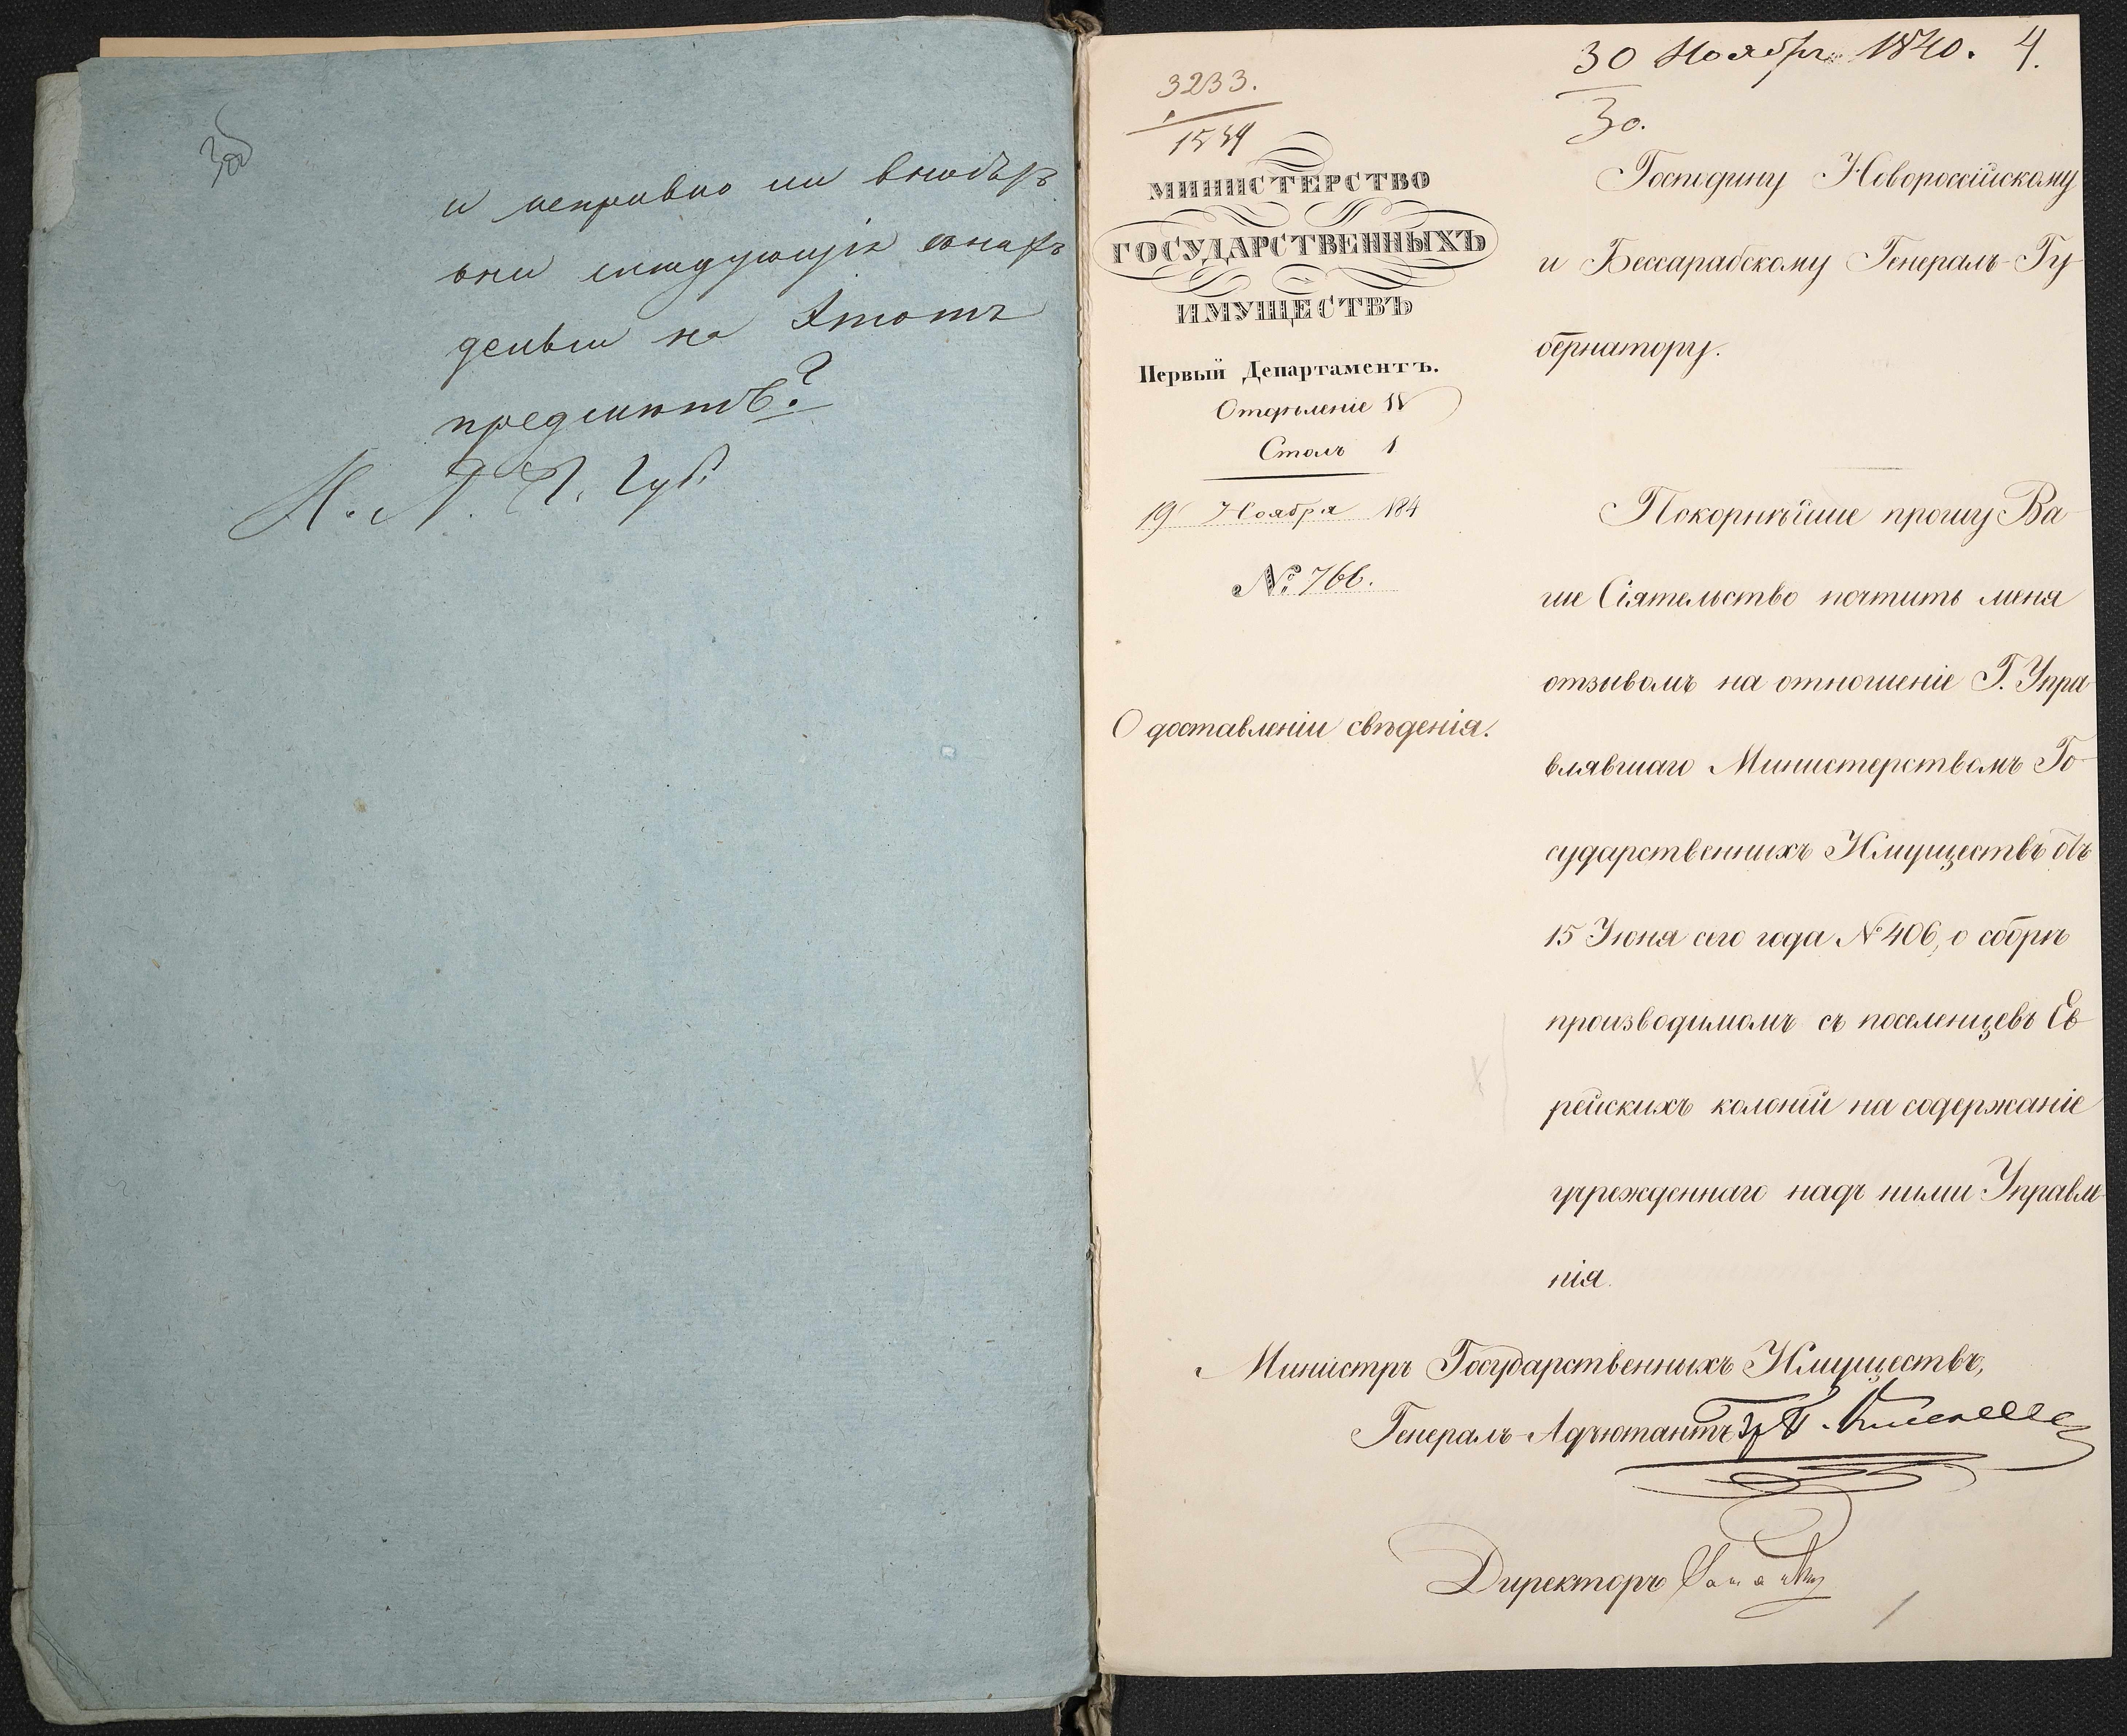 3об
и исправно ли вносятъ
они следующія съ нихъ
деньги на этотъ
предметъ?
30 Ноября 1840. 4.
30.
3233.
1539
МИНИСТЕРСТВО
ГОСУДАРСТВЕННЫХЪ
ИМУЩЕСТВЪ
Первый Департаментъ.
Отдѣленіе IV
Столъ 1
19 Ноября 184
№ 766.
О доставленіи свѣденія.
Господину Новороссійскому
и Бессарабскому Генералъ-Гу-
бернатору.
Покорнѣйше прошу Ва-
ше Сіятельство почтить меня
отзывомъ на отношеніе Г. Упра-
влявшаго Министерствомъ Го-
сударственныхъ Имуществъ отъ
15 Іюня сего года № 406, о сборѣ
производимомъ съ поселенцевъ Ев-
рейскихъ колоній на содержаніе
учрежденнаго надъ ними Управле-
нія.
Министръ Государственныхъ Имуществъ,
Генералъ-Адъютантъ Гр. П. Киселевъ
Директоръ